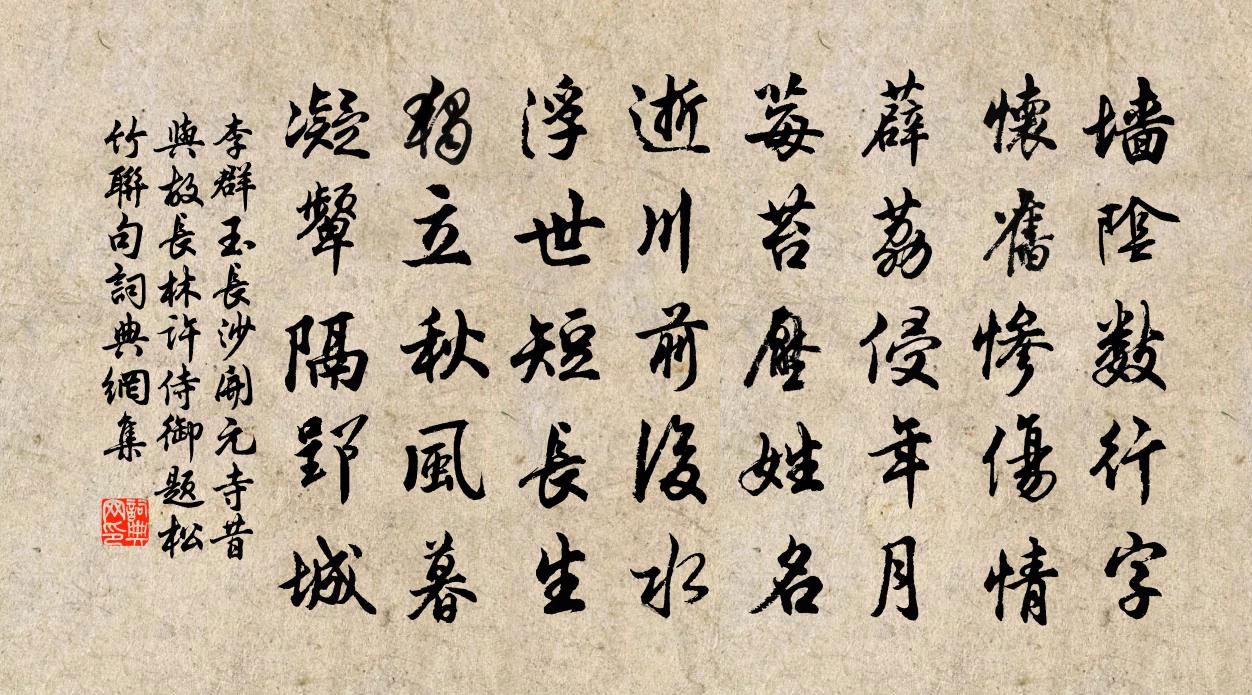 墻陰數行字
懷舊慘傷情
薜荔侵年月
莓苔壓姓名
逝川前後水
浮世短長生
獨立秋風暮
凝顰隔郢城
李群玉長沙開元寺昔
與故長林許侍御題松
竹聯句詞典網集
詞典網印